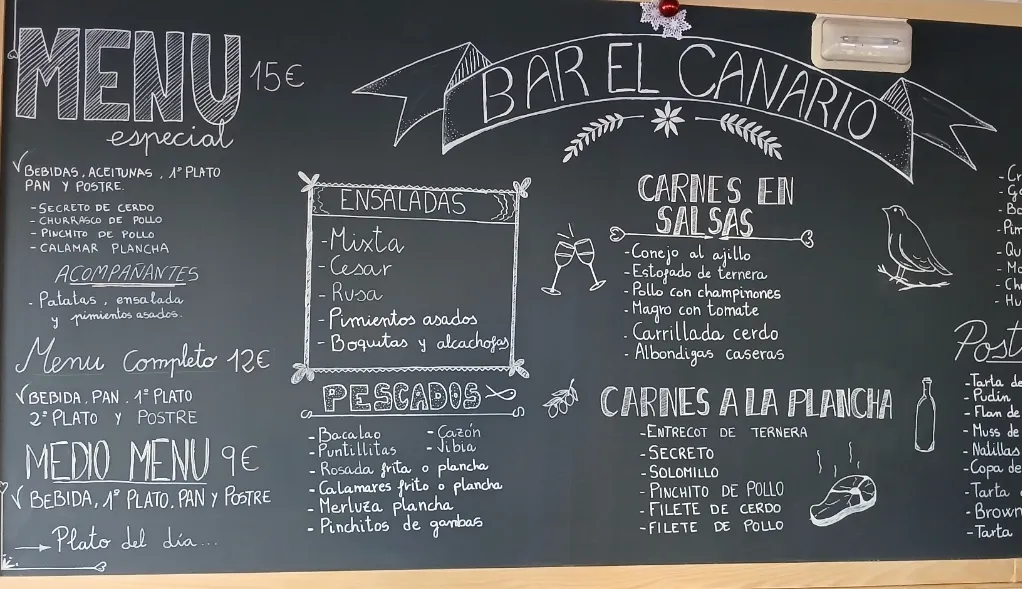 MENU 15€
especial
√ BEBIDAS, ACEITUNAS, 1º PLATO
PAN Y POSTRE.
- SECRETO DE CERDO
- CHURRASCO DE POLLO
- PINCHITO DE POLLO
- CALAMAR PLANCHA
ACOMPAÑANTES
- Patatas, ensalada
y pimientos asados.
Menu Completo 12€
√ BEBIDA, PAN, 1º PLATO
2º PLATO Y POSTRE
MEDIO MENU 9€
√ BEBIDA, 1º PLATO, PAN Y POSTRE
→ Plato del día...
BAR EL CANARIO
ENSALADAS
- Mixta
- Cesar
- Rusa
- Pimientos asados
- Boquitas y alcachofas
PESCADOS
- Bacalao - Cazón
- Puntillitas - Jibia
- Rosada frita o plancha
- Calamares frito o plancha
- Merluza plancha
- Pinchitos de gambas
CARNES EN
SALSAS
- Conejo al ajillo
- Estofado de ternera
- Pollo con champinones
- Magro con tomate
- Carrillada cerdo
- Albondigas caseras
CARNES A LA PLANCHA
- ENTRECOT DE TERNERA
- SECRETO
- SOLOMILLO
- PINCHITO DE POLLO
- FILETE DE CERDO
- FILETE DE POLLO
Post
- Tarta de
- Pudin
- Flan de
- Muss de
- Natillas
- Copa de
- Tarta
- Brown
- Tarta